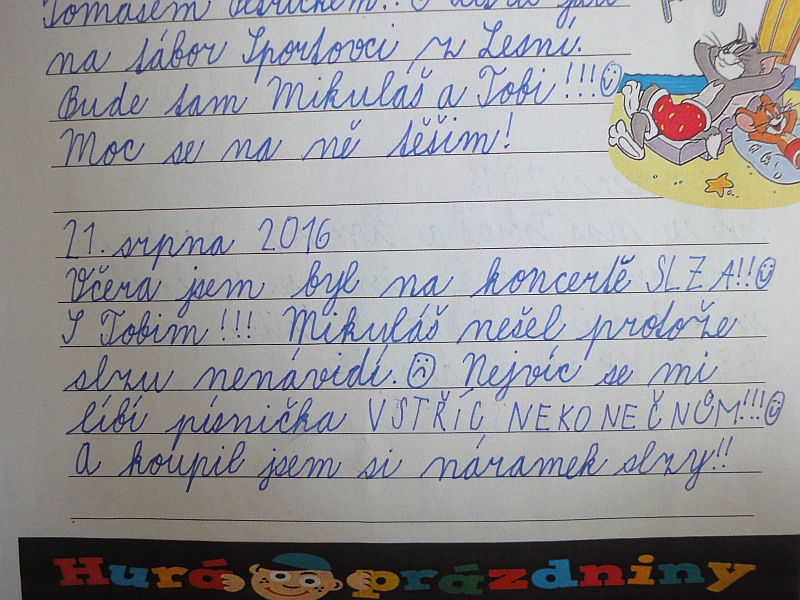 Tomášem
na tábor Sportovci z Lesní.
Bude tam Mikuláš a Tobi!!!☺
Moc se na ně těším!
21. srpna 2016
Včera jsem byl na koncertě SLZA!!☺
S Tobim!!! Mikuláš nešel protože
slzu nenávidí.☹ Nejvíc se mi
líbí písnička VSTŘÍC NEKONEČNŮM!!!☺
A koupil jsem si náramek slzy!!
Hurá prázdniny